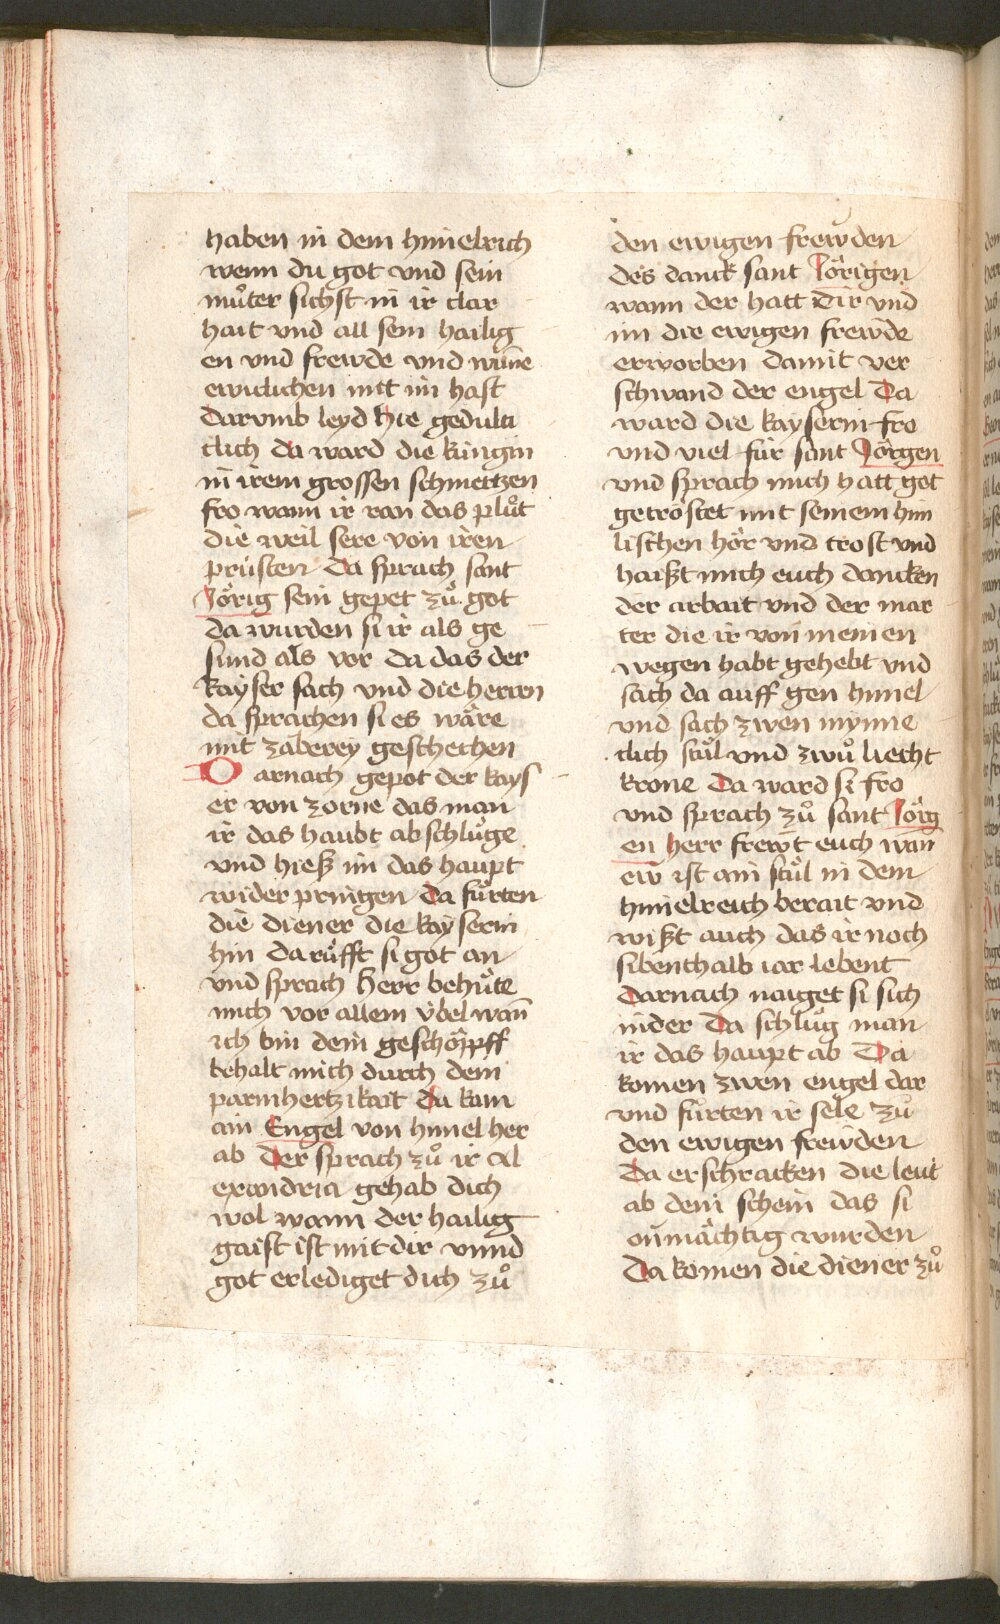 haben in dem himelrich
wenn du got vnd sein
muͦter sichst in ir clar
hait vnd all sein hailig
en vnd frewde vnd wūne
ewiclichen mit im hast
Darvmb leyd hie gedulti
clich da ward die küngin
in irem grossen schmertzen
fro wann ir ran das pluͦt
die weil sere von iren
prüsten Da sprach sant
Jörig sein gepet zuͦ got
da wurden si ir als ge
sund als vor da das der
kayser sach vnd die herren
da sprachen si es wäre
mit zaberey geschechen
Darnach gepot der kays
er von zorne das man
ir das haubt abschluͦge
vnd hieß im das haupt
wider pringen Da fuͦrten
die diener die kayserin
hin da ruͦfft si got an
vnd sprach Herr behuͤte
mich vor allem übel wan̄
ich bin dein geschöpff
behalt mich durch dein
parmhertzikait Da kam
ain Engel von himel her
ab Der sprach zuͦ ir Al
exandria gehab dich
wol wann der hailig
gaist ist mit dir vnnd
got erlediget dich zuͦ
den ewigen frewden
des danck sant Jörigen
wann der hatt dir vnd
im die ewigen frewde
erworben damit ver
schwand der engel Da
ward die kayserin fro
vnd viel für sant Jörgen
vnd sprach mich hatt got
getröstet mit seinem him
lischen hör vnd trost vnd
haißt mich euch dancken
der arbait vnd der mar
ter die ir von meinen
wegen habt gehebt vnd
sach da auff gen himel
vnd sach zwen mynne
clich stuͤl vnd zwuͦ liecht
krone Da ward si fro
vnd sprach zuͦ sant Jörg
en herr frewt euch wan̄
ew ist ain stuͦl in dem
himelreich berait vnd
wißt auch das ir noch
sibenthalb iar lebent
Darnach naiget si sich
nider Da schluͦg man
ir das haupt ab Da
komen zwen engel dar
vnd fuͦrten ir sele zuͦ
den ewigen frewden
Da erschracken die leut
ab dem schein das si
onmächtig wurden
Da komen die diener zuͦ